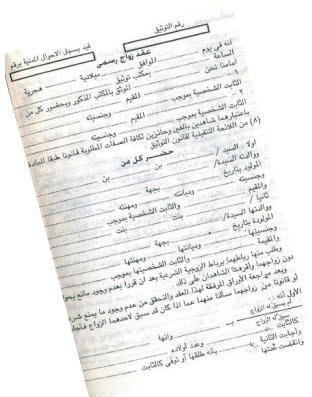 رقم التوثيق
قيد بسجل الاحوال المدنية برقم
عقد زواج رسمى
انه فى يوم الموافق ميلادية هجرية
الساعة بمكتب توثيق
امامنا نحن الموثق بالمكتب المذكور وبحضور كل من
١ - المقيم وجنسيته
الثابت الشخصية بموجب
٢ - المقيم وجنسيته
الثابت الشخصية بموجب
باعتبارهما شاهدين بالغين وحائزين لكافة الصفات المطلوبة قانونا طبقا للمادة
(٨) من اللائحة التنفيذية لقانون التوثيق
حضر كل من
اولا : السيد / بن بن
ووالدته السيدة/
المولود بتاريخ بجهة
وجنسيته وديانته ومهنته
والمقيم والثابت الشخصية بموجب
ثانيا / بنت بنت
ووالدتها السيدة/
المولودة بتاريخ بجهة
وجنسيتها : وديانتها ومهنتها
والمقيمة والثابت الشخصيتها بموجب
وطلب منها رباطهما برباط الزوجية الشرعية بعد ان قررا بعدم وجود مانع يحول
دون زواجهما وأقر الشاهدان على ذلك
وبعد مراجعة الأوراق المرفقة لهذا العقد والتحقق من عدم وجود ما يمنع شرعا
او قانونا من زواجهما سألنا منهما عما اذا كان قد سبق لاحدهما الزواج فأجاب
الأول أنه :
لم يسبق له الزواج
سبق له الزواج بـ وانها
كالثابت وعدد أولاده
وأجابت الثانية بأنه طلقها أو توفى كالثابت
وانقضت عدتها